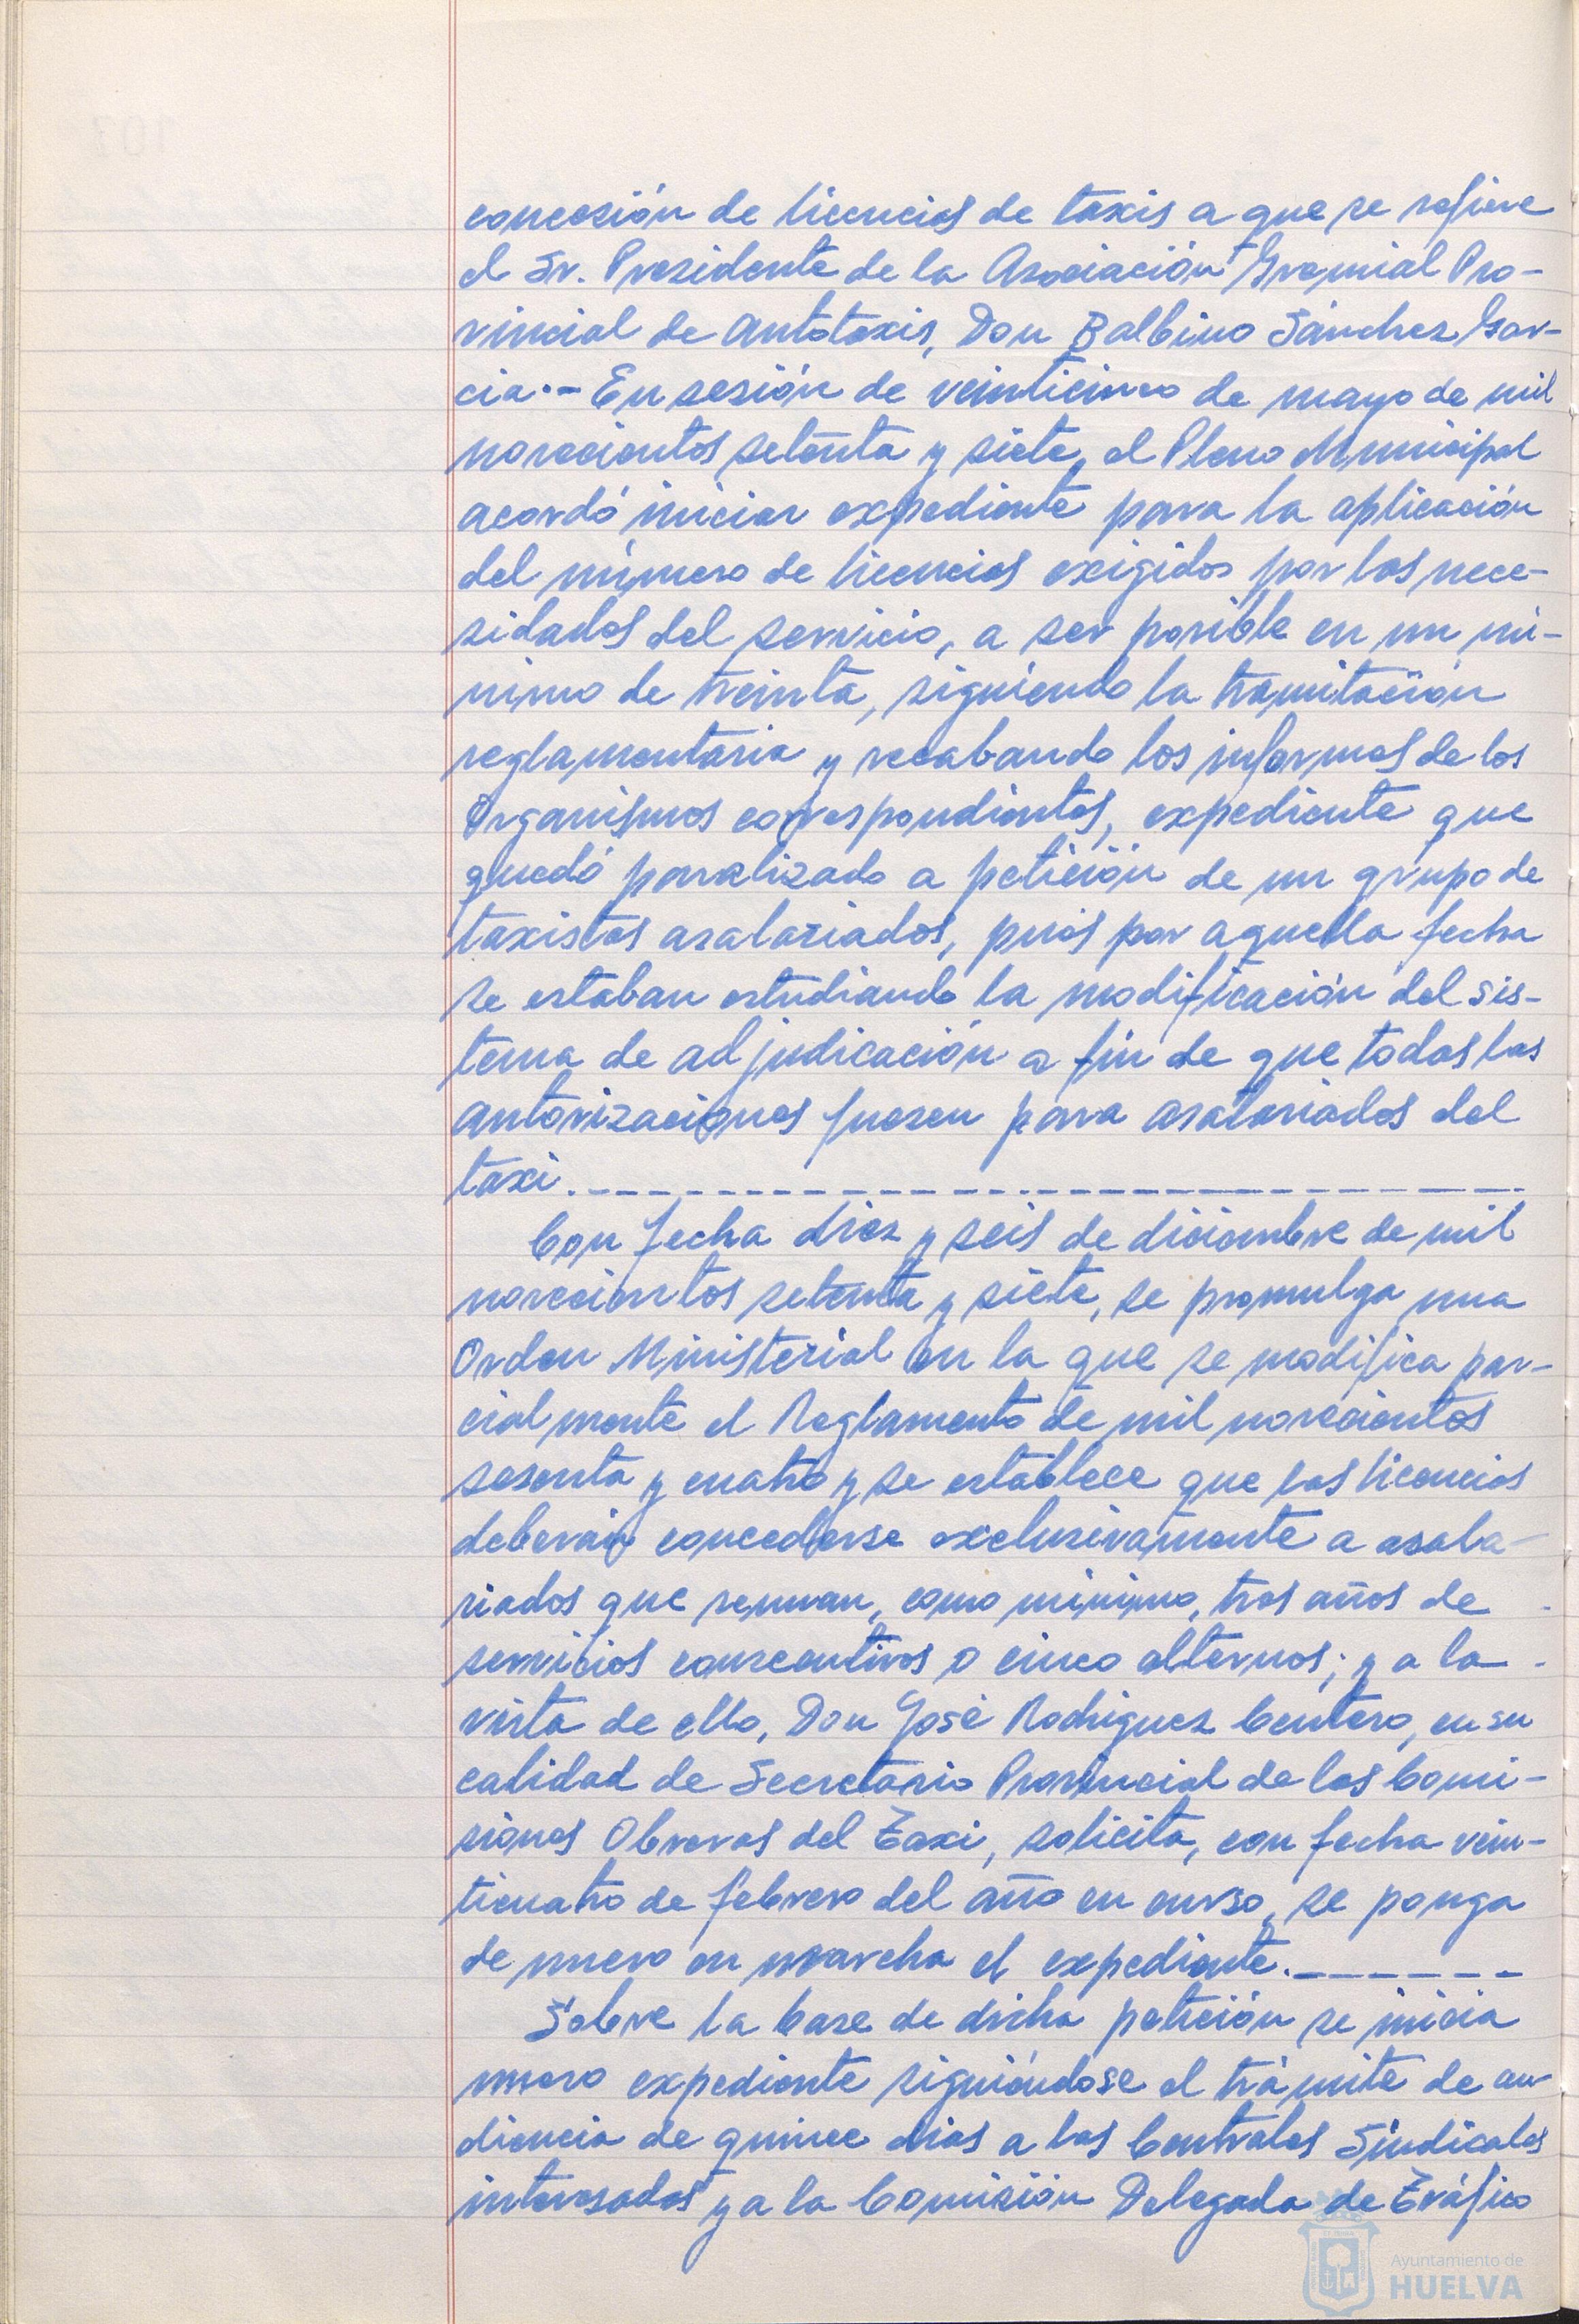 concesión de licencias de taxis a que se refiere
el Sr. Presidente de la Asociación Gremial Pro-
vincial de Autotaxis, Don Balbino Sánchez Gar-
cia.- En sesión de veinticinco de mayo de mil
novecientos setenta y siete, el Pleno Municipal
acordó iniciar expediente para la aplicación
del número de licencias exigidos por las nece-
sidades del servicio, a ser posible en un mí-
nimo de treinta, siguiendo la tramitación
reglamentaria y recabando los informes de los
Organismos correspondientes, expediente que
quedó paralizado a petición de un grupo de
taxistas asalariados, pués por aquella fecha
se estaban estudiando la modificación del sis-
tema de adjudicación a fin de que todas las
autorizaciones fuesen para asalariados del
taxi.
Con fecha diez y seis de diciembre de mil
novecientos setenta y siete, se promulga una
Orden Ministerial en la que se modifica par-
cialmente el Reglamento de mil novecientos
sesenta y cuatro y se establece que las licencias
deberán concederse exclusivamente a asala-
riados que reunan, como mínimo, tres años de
servicios consecutivos o cinco alternos; y a la
vista de ello, Don José Rodríguez Centero, en su
calidad de Secretario Provincial de las Comi-
siones Obreras del Taxi, solicita, con fecha vein-
ticuatro de febrero del año en curso, se ponga
de nuevo en marcha el expediente.
Sobre la base de dicha petición se inicia
nuevo expediente siguiéndose el trámite de au-
diencia de quince dias a las Centrales Sindicales
interesadas y a la Comisión Delegada de Tráfico
Ayuntamiento de
HUELVA